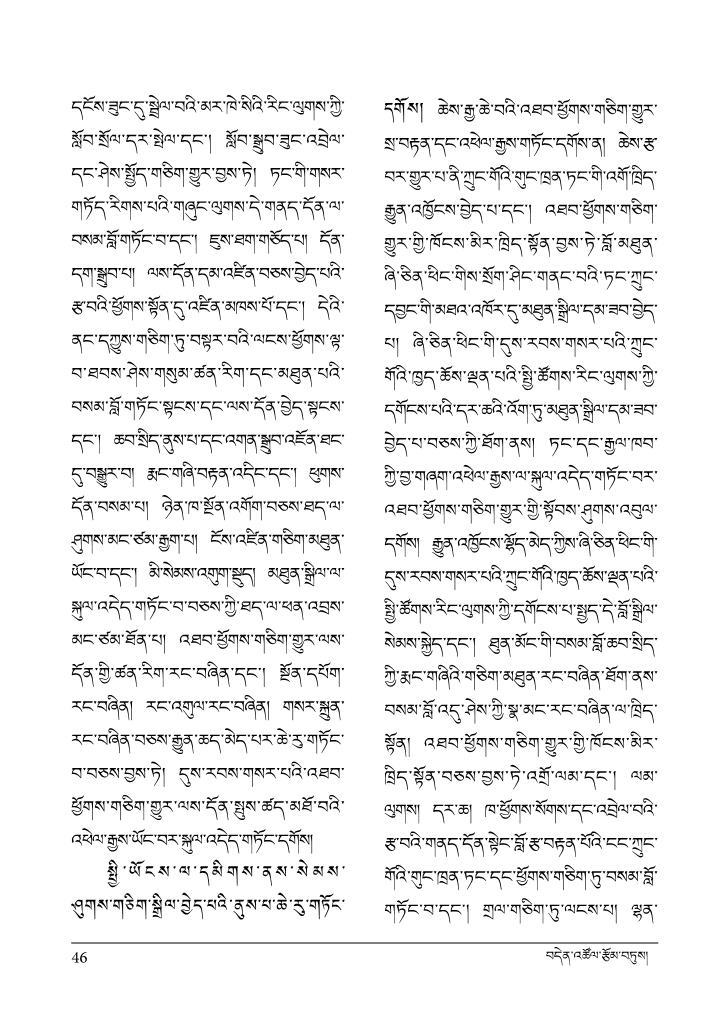 དངོས་ཟུང་དུ་སྦྲེལ་བའི་མར་ཁེ་སིའི་རིང་ལུགས་ཀྱི་
སློབ་སྲོལ་དར་སྤེལ་དང་། སློབ་སྒྲུབ་ཟུང་འབྲེལ་
དང་ཤེས་སྤྱོད་གཅིག་གྱུར་བྱས་ཏེ། ཏང་གི་གསར་
གཏོད་རིགས་པའི་གཞུང་ལུགས་དེ་གནད་དོན་ལ་
བསམ་བློ་གཏོང་བ་དང་། ཇུས་ཐག་གཅོད་པ། དོན་
དག་སྒྲུབ་པ། ལས་དོན་དམ་འཛིན་བཅས་བྱེད་པའི་
རྩ་བའི་ཕྱོགས་སྟོན་དུ་འཛིན་མཁས་པོ་དང་། དེའི་
ནང་དཀྱུས་གཅིག་ཏུ་བསྟར་བའི་ལངས་ཕྱོགས་ལྟ་
བ་ཐབས་ཤེས་གསུམ་ཚན་རིག་དང་མཐུན་པའི་
བསམ་བློ་གཏོང་སྟངས་དང་ལས་དོན་བྱེད་སྟངས་
དང་། ཆབ་སྲིད་ནུས་པ་དང་འགན་སྒྲུབ་འཇོན་ཐང་
དུ་བསྒྱུར་བ། རྨང་གཞི་བརྟན་འདིང་དང་། ཕུགས་
དོན་བསམ་པ། ཉེན་ཁ་སྔོན་འགོག་བཅས་ཐད་ལ་
ཤུགས་མང་ཙམ་རྒྱག་པ། ངོས་འཛིན་གཅིག་མཐུན་
ཡོང་བ་དང་། མི་སེམས་འགུག་སྡུད། མཐུན་སྒྲིལ་ལ་
སྐུལ་འདེད་གཏོང་བ་བཅས་ཀྱི་ཐད་ལ་ཕན་འབྲས་
མང་ཙམ་ཐོན་པ། འཐབ་ཕྱོགས་གཅིག་གྱུར་ལས་
དོན་གྱི་ཚན་རིག་རང་བཞིན་དང་། སྔོན་དཔོག་
རང་བཞིན། རང་འགུལ་རང་བཞིན། གསར་སྐྲུན་
རང་བཞིན་བཅས་རྒྱུན་ཆད་མེད་པར་ཆེ་རུ་གཏོང་
བ་བཅས་བྱས་ཏེ། དུས་རབས་གསར་པའི་འཐབ་
ཕྱོགས་གཅིག་གྱུར་ལས་དོན་སྤུས་ཚད་མཐོ་བའི་
འཕེལ་རྒྱས་ཡོང་བར་སྐུལ་འདེད་གཏོང་དགོས།
སྤྱི་ཡོངས་ལ་དམིགས་ནས་སེམས་
ཤུགས་གཅིག་སྒྲིལ་བྱེད་པའི་ནུས་པ་ཆེ་རུ་གཏོང་
དགོས། ཆེས་རྒྱ་ཆེ་བའི་འཐབ་ཕྱོགས་གཅིག་གྱུར་
སྲ་བརྟན་དང་འཕེལ་རྒྱས་གཏོང་དགོས་ན། ཆེས་རྩ་
བར་གྱུར་པ་ནི་ཀྲུང་གོའི་གུང་ཁྲན་ཏང་གི་འགོ་ཁྲིད་
རྒྱུན་འཁྱོངས་བྱེད་པ་དང་། འཐབ་ཕྱོགས་གཅིག་
གྱུར་གྱི་ཁོངས་མིར་ཁྲིད་སྟོན་བྱས་ཏེ་བློ་མཐུན་
ཞི་ཅིན་ཕིང་གིས་སྲོག་ཤིང་གནང་བའི་ཏང་ཀྲུང་
དབྱང་གི་མཐའ་འཁོར་དུ་མཐུན་སྒྲིལ་དམ་ཟབ་བྱེད་
པ། ཞི་ཅིན་ཕིང་གི་དུས་རབས་གསར་པའི་ཀྲུང་
གོའི་ཁྱད་ཆོས་ལྡན་པའི་སྤྱི་ཚོགས་རིང་ལུགས་ཀྱི་
དགོངས་པའི་དར་ཆའི་འོག་ཏུ་མཐུན་སྒྲིལ་དམ་ཟབ་
བྱེད་པ་བཅས་ཀྱི་ཐོག་ནས། ཏང་དང་རྒྱལ་ཁབ་
ཀྱི་བྱ་གཞག་འཕེལ་རྒྱས་ལ་སྐུལ་འདེད་གཏོང་བར་
འཐབ་ཕྱོགས་གཅིག་གྱུར་གྱི་སྟོབས་ཤུགས་འབུལ་
དགོས། རྒྱུན་འཁྱོངས་ལྷོད་མེད་ཀྱིས་ཞི་ཅིན་ཕིང་གི་
དུས་རབས་གསར་པའི་ཀྲུང་གོའི་ཁྱད་ཆོས་ལྡན་པའི་
སྤྱི་ཚོགས་རིང་ལུགས་ཀྱི་དགོངས་པ་སྤྱད་དེ་བློ་སྒྲིལ་
སེམས་སྐྱེད་དང་། ཐུན་མོང་གི་བསམ་བློ་ཆབ་སྲིད་
ཀྱི་རྨང་གཞིའི་གཅིག་མཐུན་རང་བཞིན་ཐོག་ནས་
བསམ་བློ་འདུ་ཤེས་ཀྱི་སྣ་མང་རང་བཞིན་ལ་ཁྲིད་
སྟོན། འཐབ་ཕྱོགས་གཅིག་གྱུར་གྱི་ཁོངས་མིར་
ཁྲིད་སྟོན་བཅས་བྱས་ཏེ་འགྲོ་ལམ་དང་། ལམ་
ལུགས། དར་ཆ། ཁ་ཕྱོགས་སོགས་དང་འབྲེལ་བའི་
རྩ་བའི་གནད་དོན་སྟེང་བློ་རྩ་བརྟན་པོའི་ངང་ཀྲུང་
གོའི་གུང་ཁྲན་ཏང་དང་ཕྱོགས་གཅིག་ཏུ་བསམ་བློ་
གཏོང་བ་དང་། གྲལ་གཅིག་ཏུ་ལངས་པ། ལྷན་
46
བདེན་འཚོལ་རྩོམ་བཏུས།